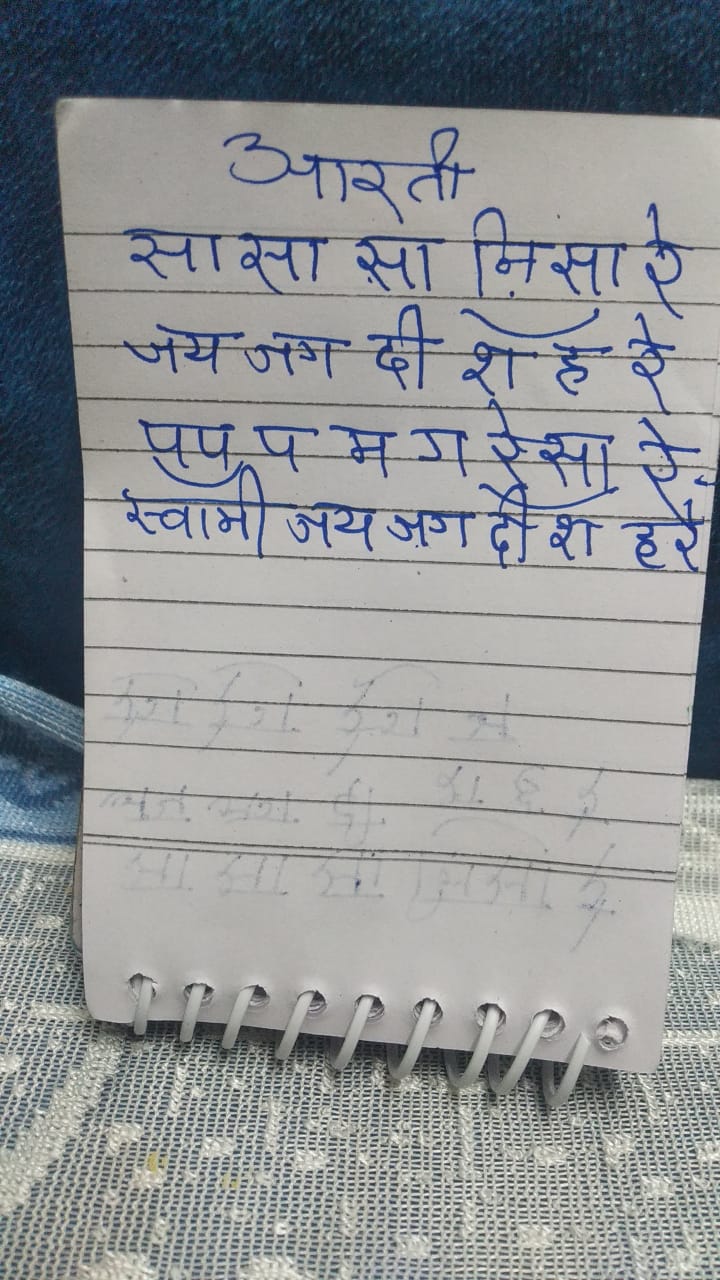 आरती
सा सा सा ऩि सा रे
जय जग दी श ह रे
प प प म ग रे सा रे
स्वामी जय जग दी श हरे